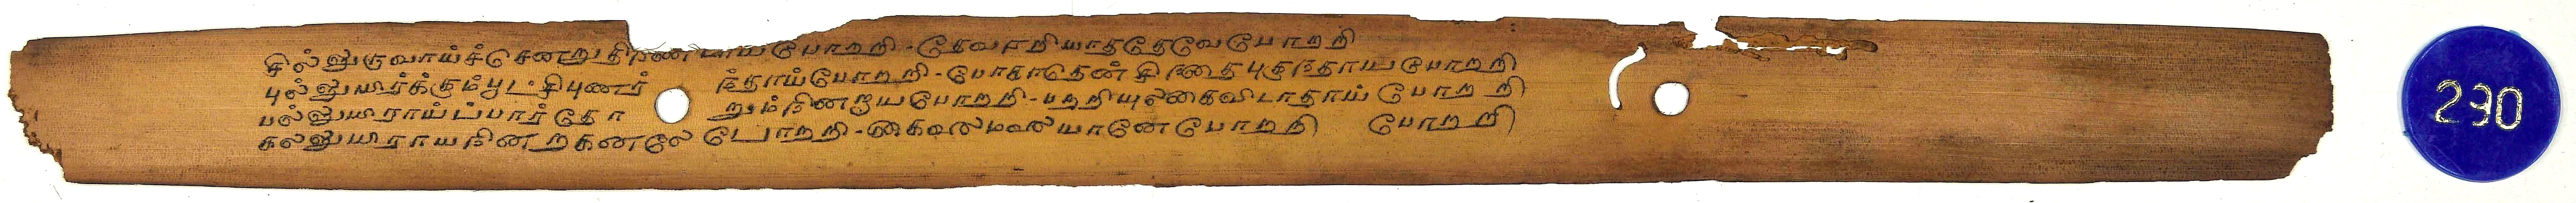 சில்லுருவாய்ச்சென்றுதிரண்டாய்போற்றி - தேவரறியாததேவேபோற்றி
புல்லுயிர்க்கும்பூட்சிபுணர்த்தாய்போற்றி - போகாதென் சிந்தைபுகுந்தாய்போற்றி
பல்லுயிராய்ப்பார்தோறும்நின்றாய்போற்றி - பற்றியுலகைவிடாதாய் போற்றி
கல்லுயிராய்நின்றகனலேபோற்றி - கைலைமலையானேபோற்றி போற்றி
290